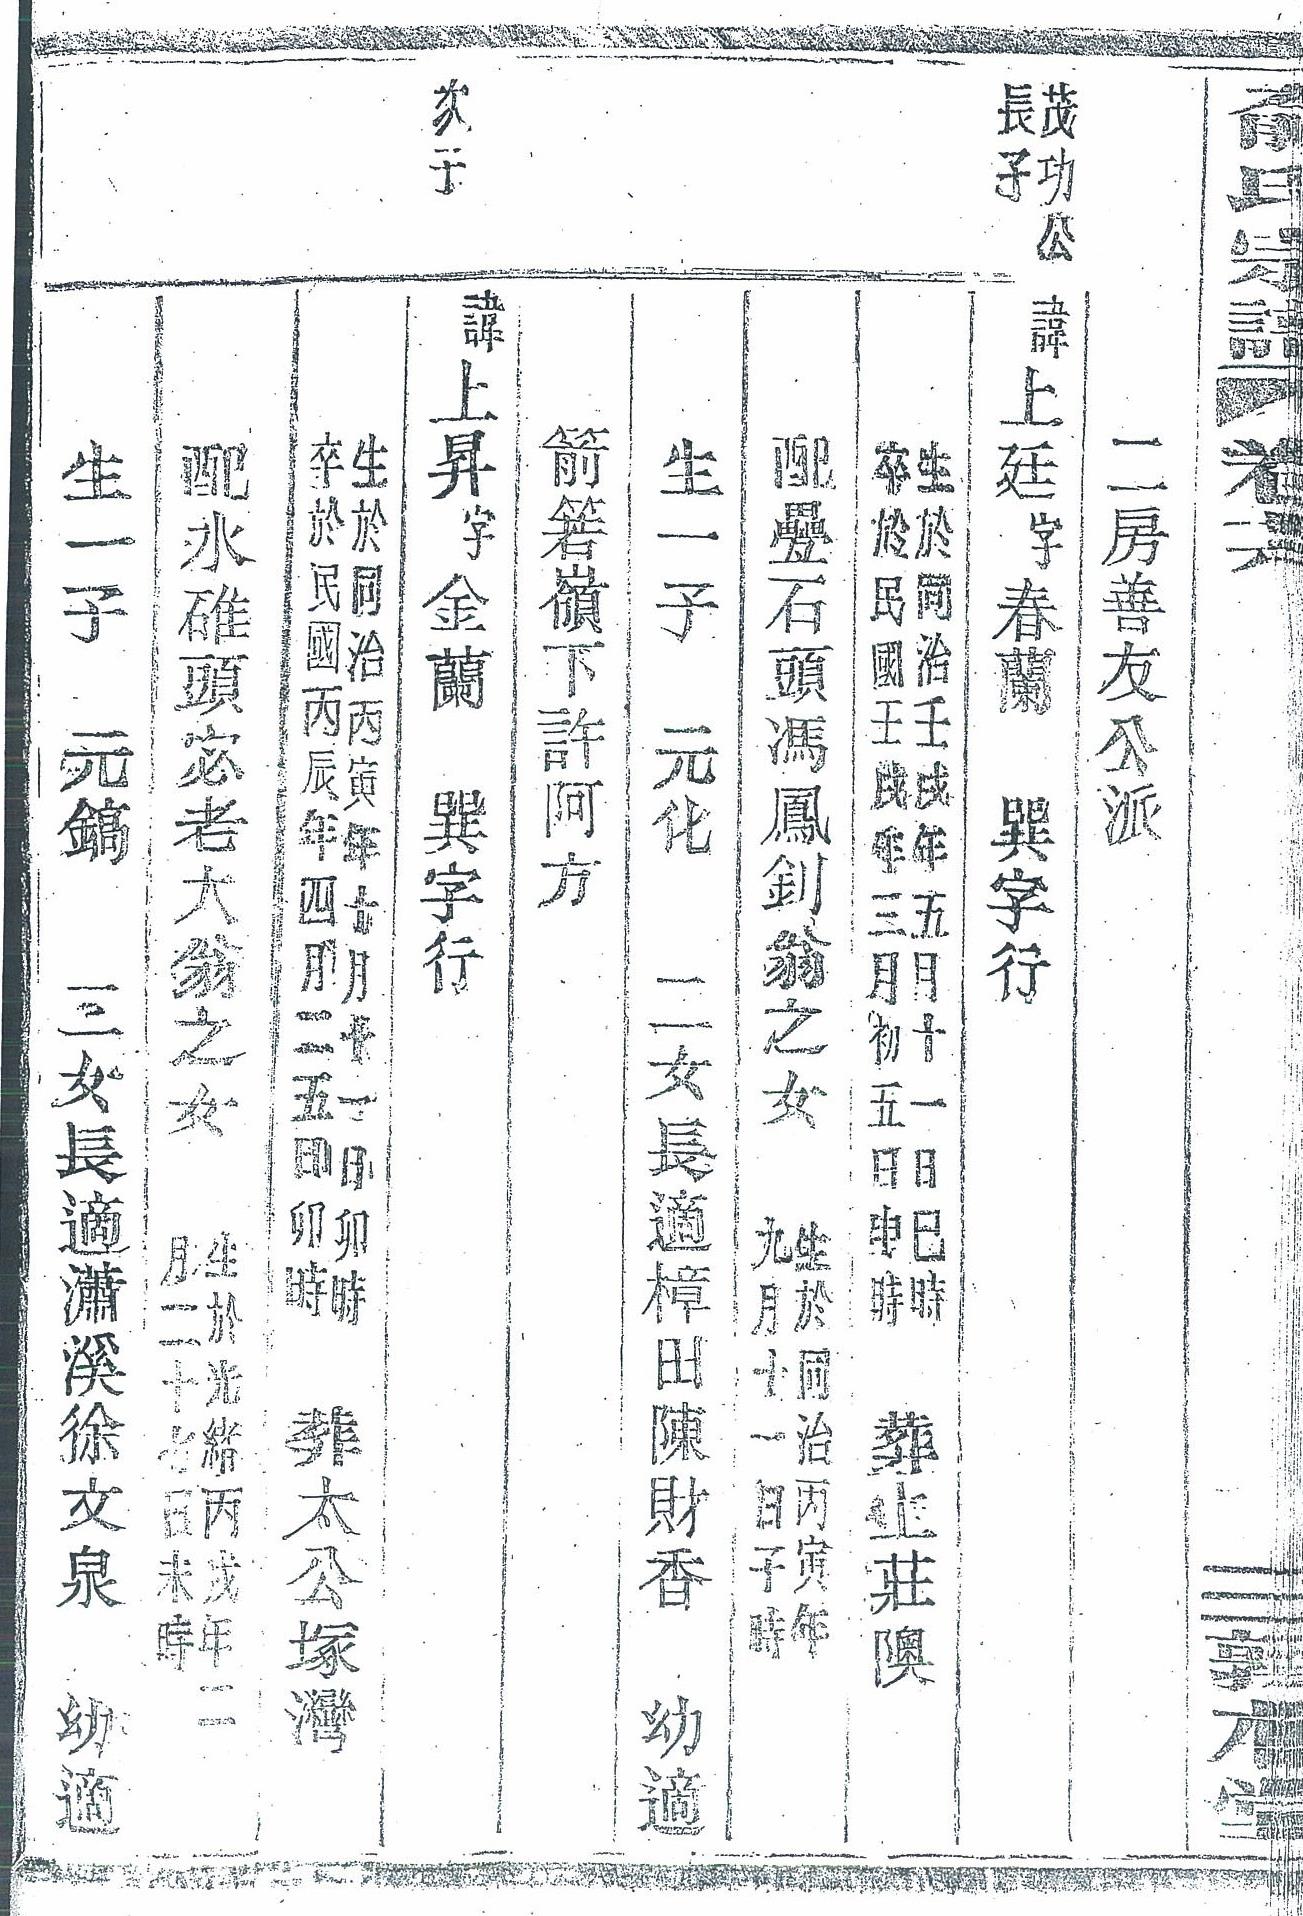 氏宗譜 卷六
敦本堂
二房善友公派
茂功公
長子
諱上廷字春蘭 巽字行
生於同治壬戌年五月十一日巳時
卒於民國壬戌年三月初五日申時
葬上莊隩
配疊石頭馮鳳釗翁之女
生於同治丙寅年
九月十一日子時
生一子 元化 二女長適樟田陳財香 幼適
箭箬嶺下許阿方
次子
諱上昇字金蘭 巽字行
生於同治丙寅年十月十一日卯時
卒於民國丙辰年四月二五日卯時
葬太公塚灣
配水碓頭宓老大翁之女
生於光緒丙戌年二
月二十七日未時
生一子 元鎬 三女長適瀟溪徐文泉 幼適